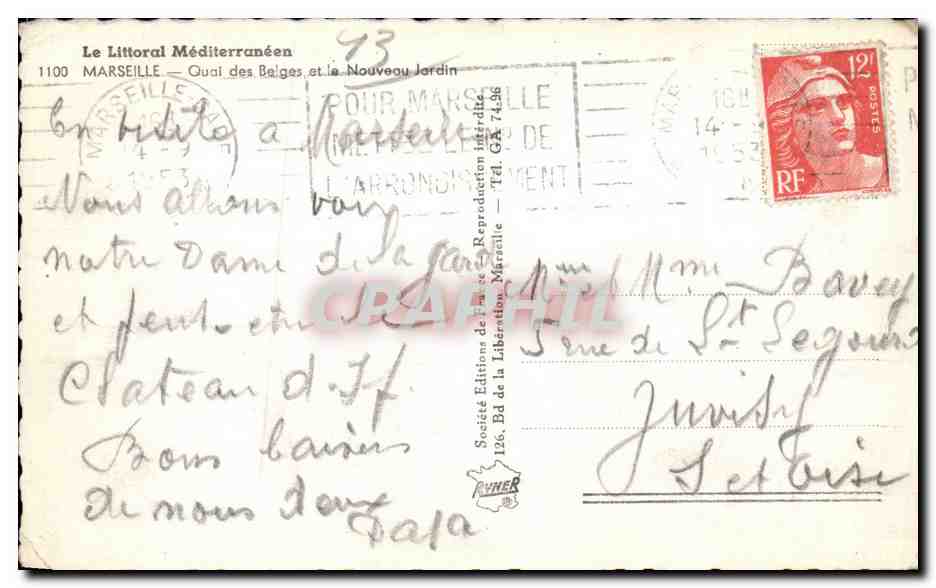 Le Littoral Méditerranéen
1100 MARSEILLE — Quai des Belges et le Nouveau Jardin
43
MARSEILLE
1953
POUR MARSEILLE
DE
L'ARRONDISSEMENT
18H
14
12F
POSTES
RF
En visite a Marseille
Nous allons voir
notre Dame de la garde
et peut-etre le
Chateau d'If.
Bons baisers
de nous deux
Société Editions de France - Reproduction interdite
126, Bd de la Libération - Marseille - Tél. GA 74-96
RYNER
et Mme Bovey
5 rue de St
Juvisy
S et Oise
CPAPHIL